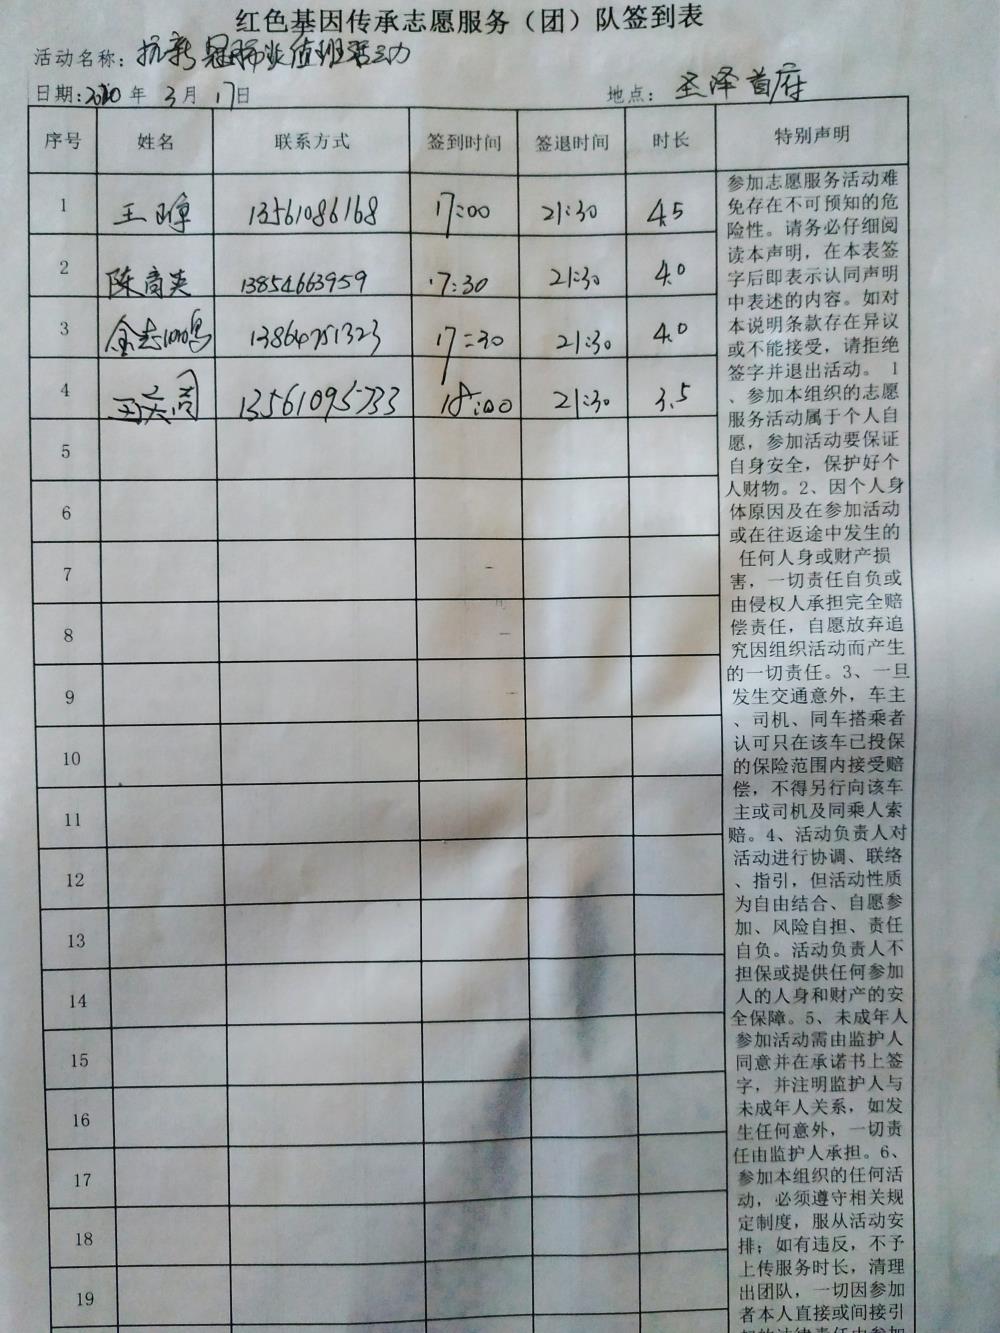 红色基因传承志愿服务（团）队签到表
活动名称：抗新冠肺炎值班活动
日期：2020年 3月 17日 地点：圣泽首府
序号 姓名 联系方式 签到时间 签退时间 时长 特别声明
1 王 13561086168 17:00 21:30 4.5
2 陈商英 13854663959 17:30 21:30 4.0
3 金志鸣 13864751323 17:30 21:30 4.0
4 13561095733 18:00 21:30 3.5
5
6
7
8
9
10
11
12
13
14
15
16
17
18
19
参加志愿服务活动难
免存在不可预知的危
险性。请务必仔细阅
读本声明，在本表签
字后即表示认同声明
中表述的内容。如对
本说明条款存在异议
或不能接受，请拒绝
签字并退出活动。 1
、参加本组织的志愿
服务活动属于个人自
愿，参加活动要保证
自身安全，保护好个
人财物。2、因个人身
体原因及在参加活动
或在往返途中发生的
任何人身或财产损
害，一切责任自负或
由侵权人承担完全赔
偿责任，自愿放弃追
究因组织活动而产生
的一切责任。3、一旦
发生交通意外，车主
、司机、同车搭乘者
认可只在该车已投保
的保险范围内接受赔
偿，不得另行向该车
主或司机及同乘人索
赔。4、活动负责人对
活动进行协调、联络
、指引，但活动性质
为自由结合、自愿参
加、风险自担、责任
自负。活动负责人不
担保或提供任何参加
人的人身和财产的安
全保障。5、未成年人
参加活动需由监护人
同意并在承诺书上签
字，并注明监护人与
未成年人关系，如发
生任何意外，一切责
任由监护人承担。6、
参加本组织的任何活
动，必须遵守相关规
定制度，服从活动安
排；如有违反，不予
上传服务时长，清理
出团队，一切因参加
者本人直接或间接引
起的法律责任由参加